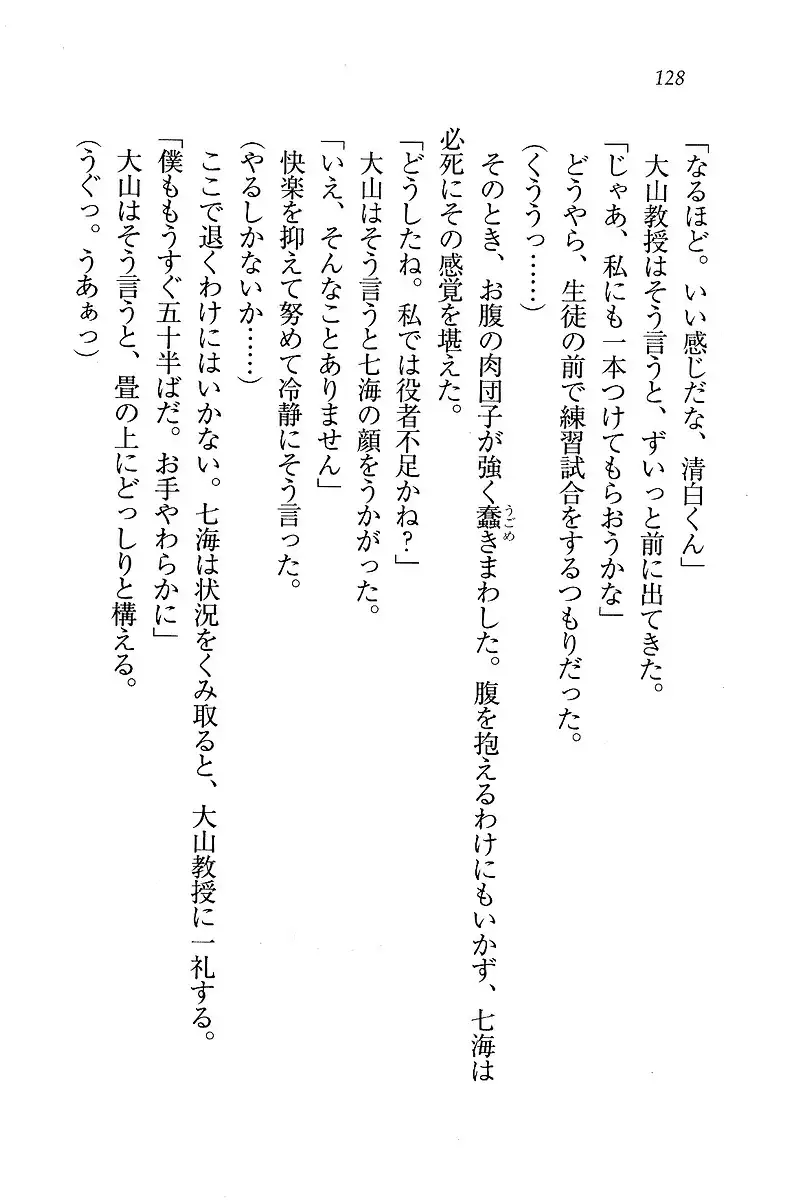 128
「なるほど。いい感じだな、清白くん」
大山教授はそう言うと、ずいっと前に出てきた。
「じゃあ、私にも一本つけてもらおうかな」
どうやら、生徒の前で練習試合をするつもりだった。
(くううっ……)
そのとき、お腹の肉団子が強く蠢きまわした。腹を抱えるわけにもいかず、七海は
うごめ
必死にその感覚を堪えた。
「どうしたね。私では役者不足かね?」
大山はそう言うと七海の顔をうかがった。
「いえ、そんなことありません」
快楽を抑えて努めて冷静にそう言った。
(やるしかないか……)
ここで退くわけにはいかない。七海は状況をくみ取ると、大山教授に一礼する。
「僕ももうすぐ五十半ばだ。お手やわらかに」
大山はそう言うと、畳の上にどっしりと構える。
(うぐっ。うあぁっ)